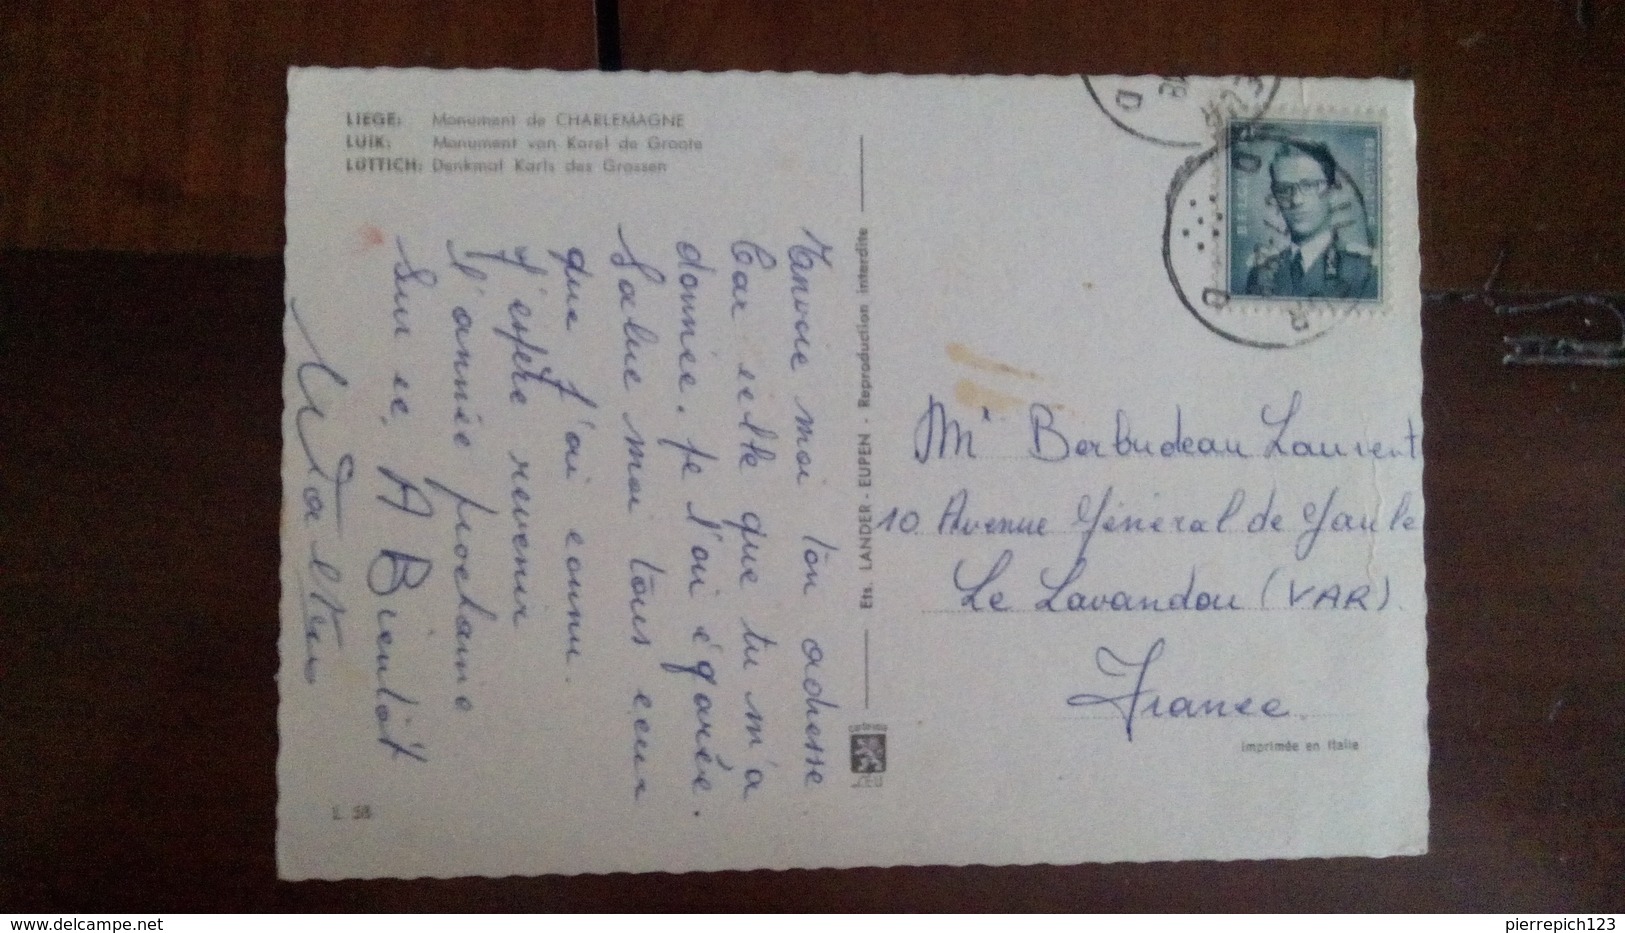 LIEGE: Monument de CHARLEMAGNE
LUIK: Monument van Karel de Groote
LÜTTICH: Denkmal Karls des Grossen
Renvoie moi ton adresse
Car celle que tu m'a
donnée. Je l'ai égarée.
Salue moi tous ceux
que j'ai connu.
J'espère revenir
l'année prochaine
Sur ce, A Bientôt
Ets. LANDER - EUPEN - Reproduction interdite
Mr Barbudeau Laurent
10. Avenue Général de Gaule
Le Lavandou (VAR).
France.
imprimée en Italie
L 58
delcampe.net
pierrepich123